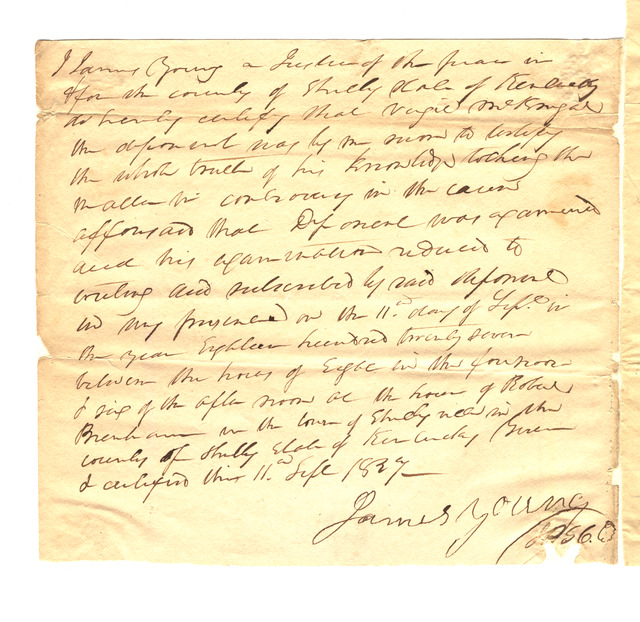 I James Young a Justice of the peace in
& for the county of Shelby State of Kentucky
do hereby certify that
the deponent was by me sworn to testify
the whole truth of his Knowledge toching the
matter in controversy in the cause
afforsaid that Deponent was examined
and his examination reduced to
writing and subscribed by said deponent
in my presence on the 11th day of Sept. in
the year Eighteen hundred twenty seven
between the hours of Eight in the forenoon
& six of the after noon at the house of Robert
in the town of Shelbyville in the
county of Shelby State of Kentucky Given
& certified this 11th Sept 1827
James Young
56.